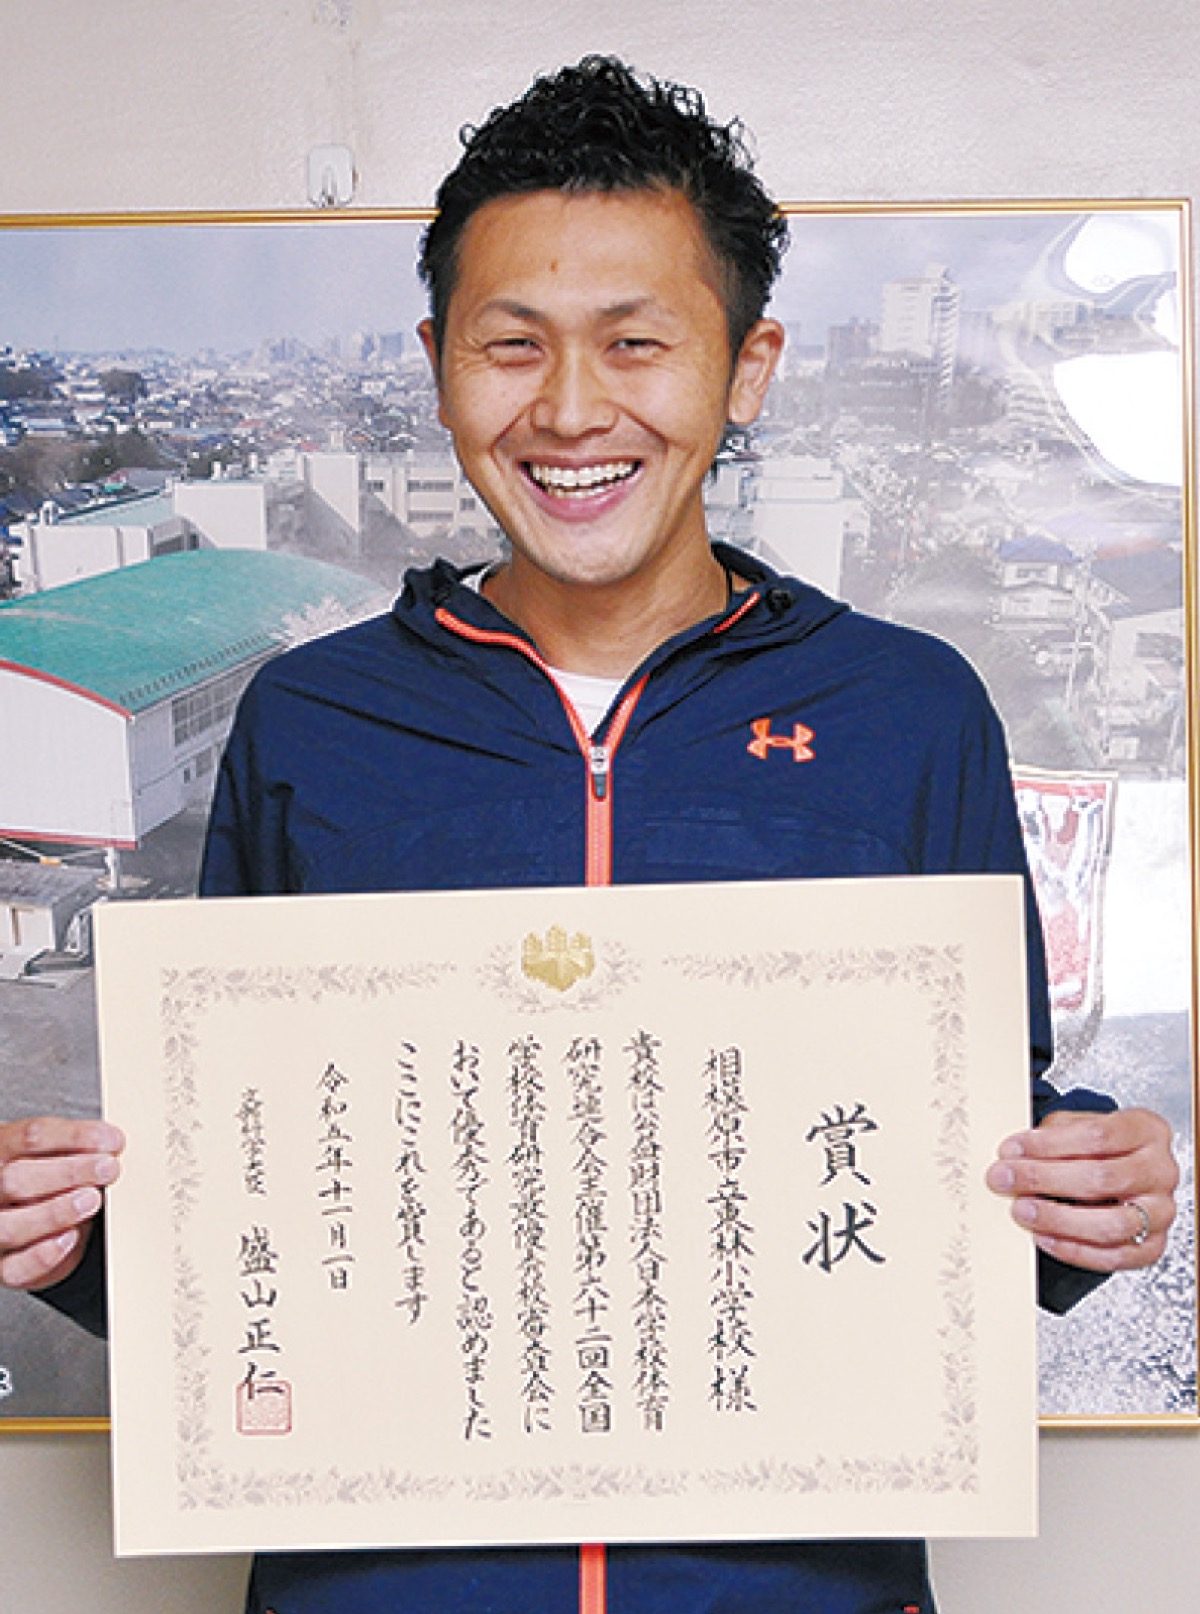 賞状
相模原市立東林小学校様
貴校は公益財団法人日本学校体育
研究連合会主催第六十二回全国
学校体育研究最優秀校審査会に
おいて優秀であると認めました
ここにこれを賞します
令和五年十一月一日
文部科学大臣 盛山正仁